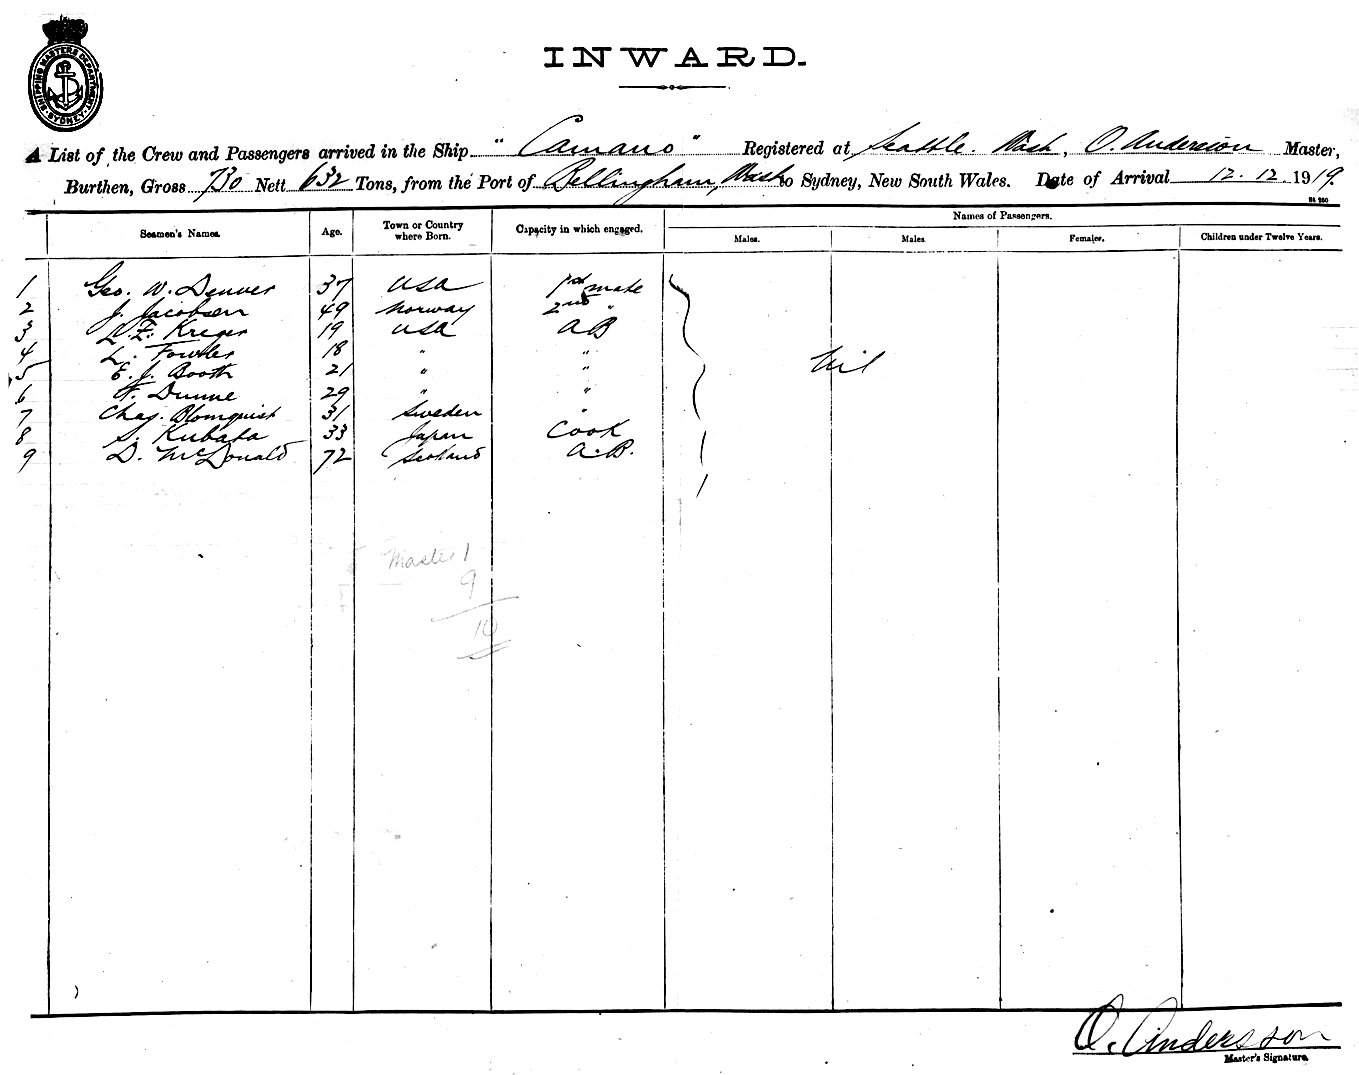 SHIPPING MASTERS DEPARTMENT SYDNEY
INWARD.
A List of the Crew and Passengers arrived in the Ship "Camano" Registered at Seattle. Wash, O. Anderson Master,
Burthen, Gross 730 Nett 632 Tons, from the Port of Bellingham, Wash to Sydney, New South Wales. Date of Arrival 12. 12. 1919.
Seamen's Names. Age. Town or Country where Born. Capacity in which engaged. Names of Passengers.
Males. Males. Females. Children under Twelve Years.
1 Geo. W. Denver 37 USA 1st mate
2 J. Jacobsen 49 Norway 2nd "
3 L. F. Kreger 19 USA AB
4 L. Fowler 18 " " Nil
5 E. J. Booth 21 " "
6 F. Dunne 29 " "
7 Chas. Blomquist 31 Sweden "
8 S. Kubata 33 Japan Cook
9 D. McDonald 72 Scotland A.B.
Master 1
9
10
O. Andersson
Master's Signature.